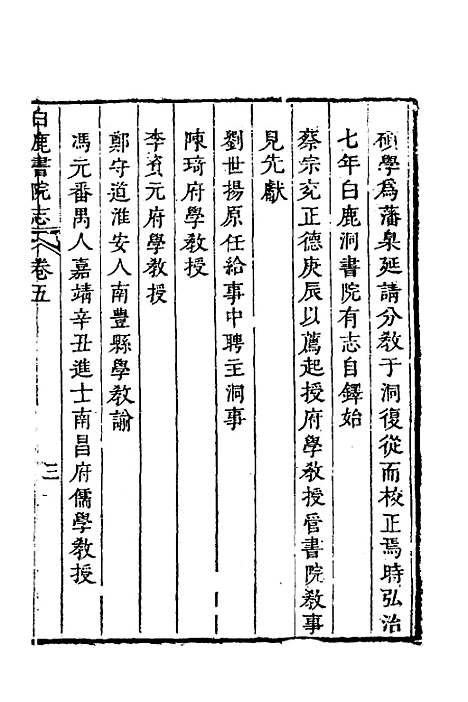 碩學爲藩臬延請分教于洞復從而校正焉時弘治
七年白鹿洞書院有志自鐸始
蔡宗兗正德庚辰以薦起授府學教授管書院教事
見先獻
劉世揚原任給事中聘主洞事
陳琦府學教授
李資元府學教授
鄭守道淮安人南豐縣學教諭
馮元番禺人嘉靖辛丑進士南昌府儒學教授
白鹿書院志 卷五 三